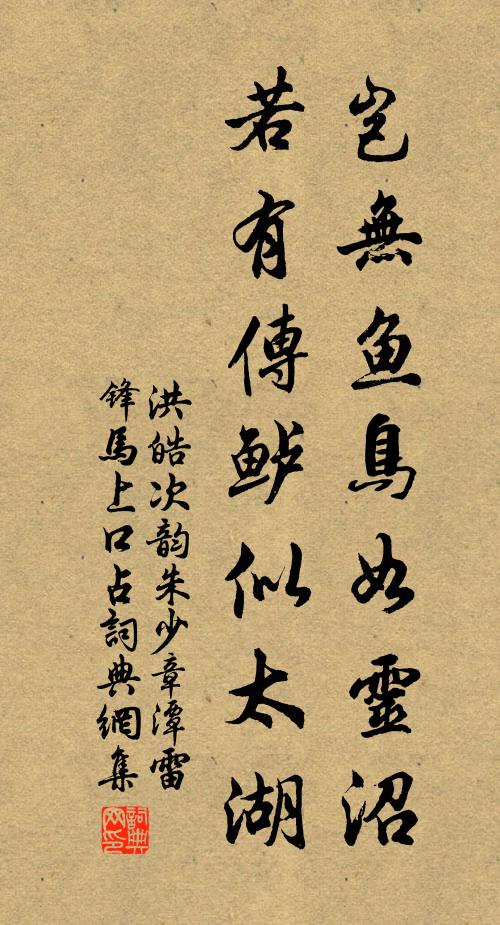 岂無鱼鳥如靈沼
若有傳鲈似太湖
洪皓次韵朱少章潭雷
锋馬上口占詞典網集
詞典网印